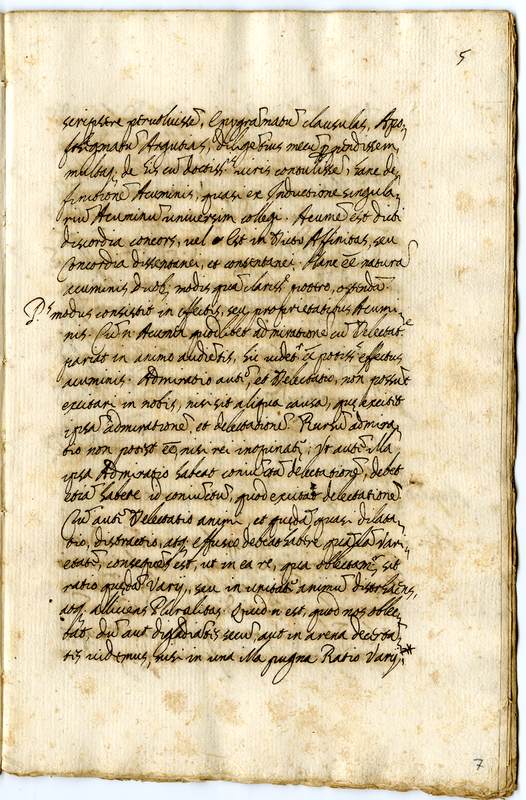 5
scripsere ptruluisse͂, Epygra͂matu͂ clausulas, Apo,
ftegmatu͂ Argutias, dilige͂tius mecu͂ ppendissem,
multaq, de his cu͂ doctiss.s viris contulisse͂, hanc de,
finitione͂ Acuminis, quasi ex Inductione singula,
riu͂ Acuminu͂ universim collegi. Acume͂ est dicti
discordia concors, vel Est in Dicto Affinitas, seu
Concordia dissentanei, et consentanei. Plane e͂e natura͂
acuminis duob, modis qua͂ clariss.e potero, oste͂da͂.
P.s modus consistit in effectis, seu proprietatibus Acumi,
nis. Cu͂ n. Acume͂ quodlibet admiratione͂ cu͂ Delectat.e
pariat in animo audie͂tis, hic videt.r e͂e potiss. effectus
acuminis. Admiratio aut., et Delectatio, non possu͂t
excitari in nobis, nisi sit aliqua causa, que excitet
ipsa͂ admiratione͂, et delectatione͂. Rursu͂ admira,
tio non potest e͂e, nisi rei inopinatę; Ut aut. illa
ipsa Admiratio habeat coniu͂cta͂ delectatione͂, debet
etia͂ habere id coniu͂ctu͂, quod excitat delectatione͂.
Cu͂ aut. Delectatio animi, et queda͂ quasi dilata,
tio, distractio, atq. effusio debeat habere qua͂da͂ Vari,
etate͂, conseque͂s est, ut in ea re, qua oblectam.r, sit
ratio queda͂ Varij, seu in unitate animu͂ distrahe͂s,
atq. alliciens Pluralitas. Quid n. est, quod nos oblec,
tat, du͂ aut digladia͂tes secu͂, aut in arena decerta͂,
tes videmus, nisi in una illa pugna Ratio Varij,
7